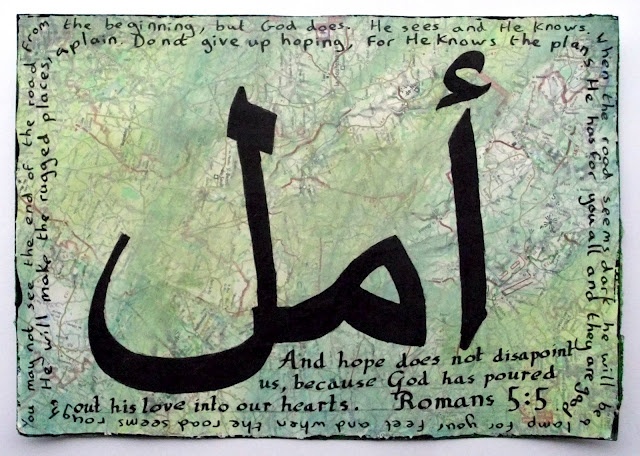 أمل
And hope does not disapoint
us, because God has poured
out his love into our hearts. Romans 5:5
You may not see the end of the road from
the beginning, but God does. He sees and He knows.
When the road seems dark he will be a
lamp for your feet and when the road seems rough
He will make the rugged places,
a plain. Do not give up hoping, For He knows the plans
He has for you all and they are good